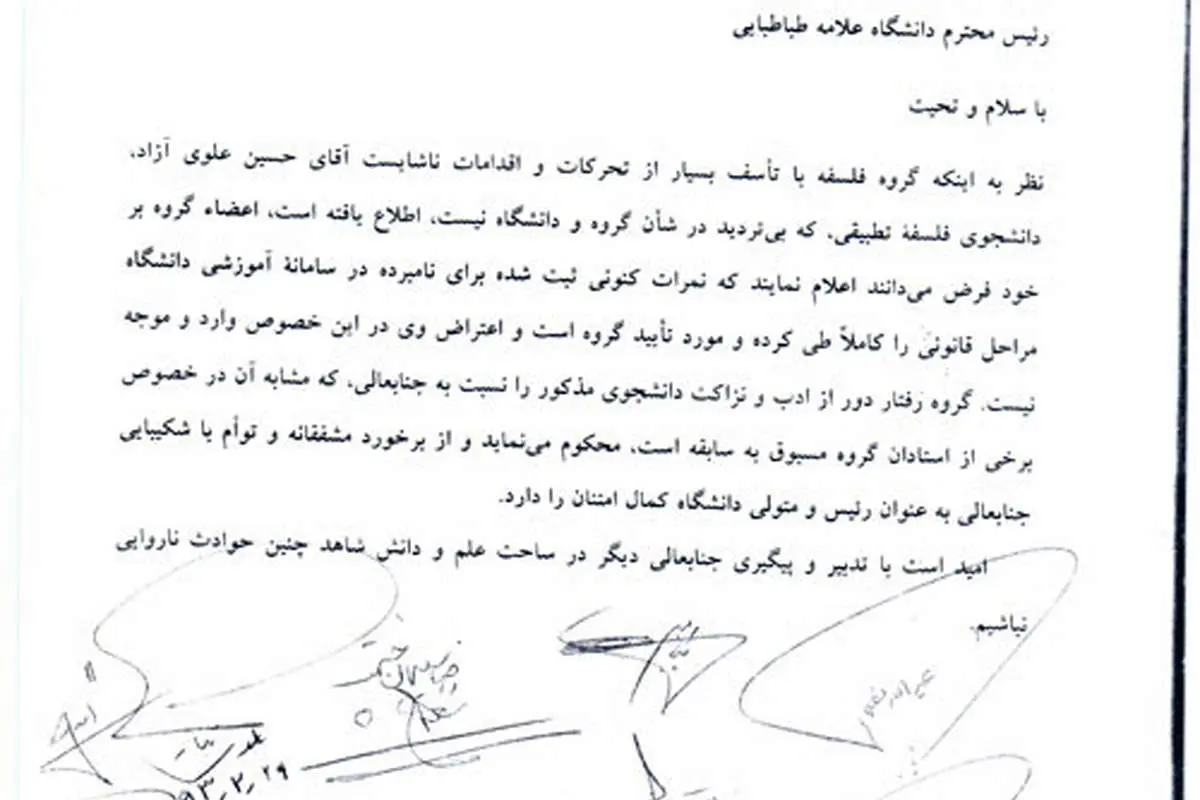 رئیس محترم دانشگاه علامه طباطبایی
با سلام و تحیت
نظر به اینکه گروه فلسفه با تأسف بسیار از تحرکات و اقدامات ناشایست آقای حسین علوی آزاد،
دانشجوی فلسفۀ تطبیقی، که بی‌تردید در شأن گروه و دانشگاه نیست، اطلاع یافته است، اعضاء گروه بر
خود فرض می‌دانند اعلام نمایند که نمرات کنونی ثبت شده برای نامبرده در سامانۀ آموزشی دانشگاه
مراحل قانونی را کاملاً طی کرده و مورد تأیید گروه است و اعتراض وی در این خصوص وارد و موجه
نیست. گروه رفتار دور از ادب و نزاکت دانشجوی مذکور را نسبت به جنابعالی، که مشابه آن در خصوص
برخی از استادان گروه مسبوق به سابقه است، محکوم می‌نماید و از برخورد مشفقانه و توأم با شکیبایی
جنابعالی به عنوان رئیس و متولی دانشگاه کمال امتنان را دارد.
امید است با تدبیر و پیگیری جنابعالی دیگر در ساحت علم و دانش شاهد چنین حوادث ناروایی
نباشیم.
۹۳٫۲٫۲۹